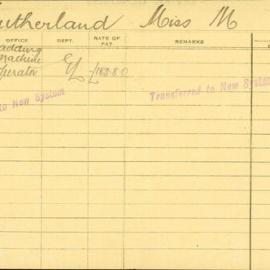 utherland Miss M
OFFICE DEPT. RATE OF PAY REMARKS
adding
Machine
perator
to New System Transferred to New System